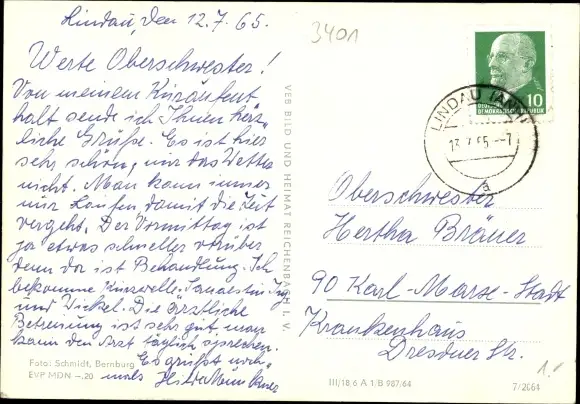 Lindau, den 12.7.65.
3401
Werte Oberschwester!
Von meinem Kuraufent
halt sende ich Ihnen herz„
liche Grüße. Es ist hier
sehr schön, nur das Wetter
nicht. Man kann immer
nur laufen, damit die Zeit
vergeht. Der Vormittag ist
ja etwas schneller vorüber
denn da ist Behandlung. Ich
bekomme Kurzwelle,
und Wickel. Die ärztliche
Betreuung ist sehr gut, man
kann den Arzt täglich sprechen.
Es grüßt noch„
mals
Foto: Schmidt, Bernburg
EVP MDN –.20
VEB BILD UND HEIMAT REICHENBACH I. V.
10
DEUTSCHE
DEMOKRATISCHE REPUBLIK
LINDAU (ANH)
13.7.65.–7
a
Oberschwester
Hertha Bräuer
90 Karl-Marx-Stadt
Krankenhaus
Dresdner Str.
1.-
III/18 6 A 1/B 987/64
7/2064